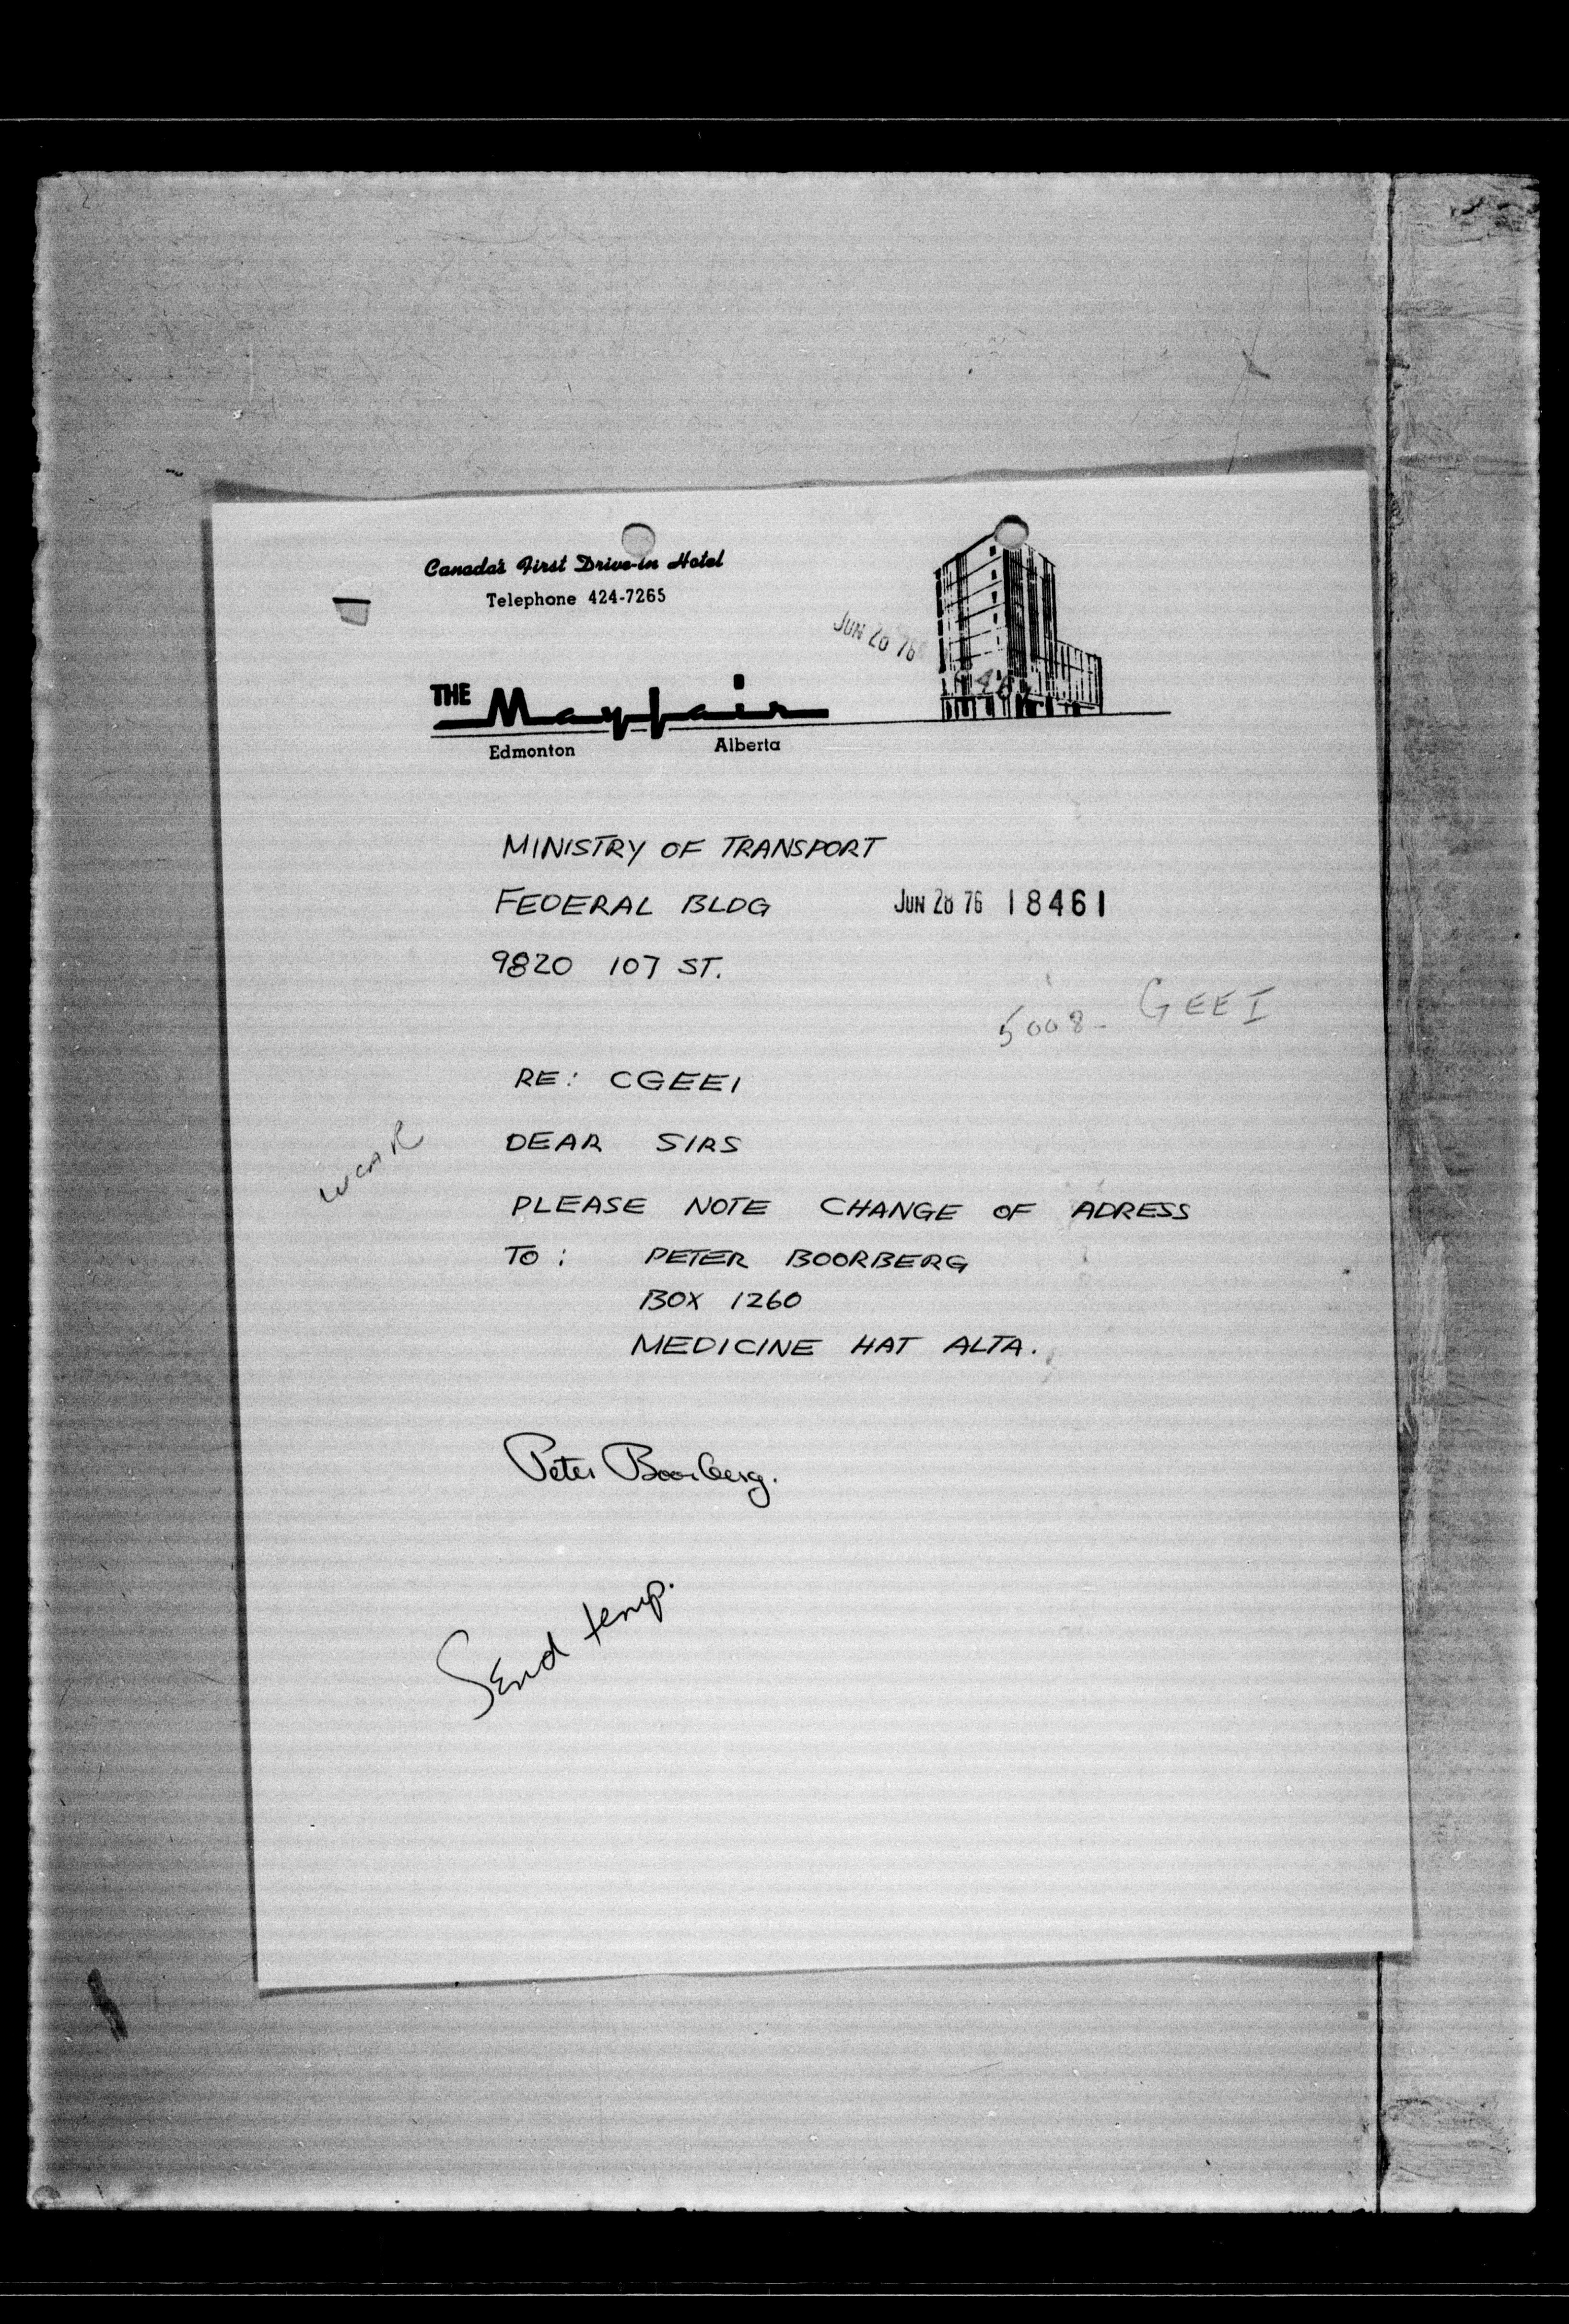 Canada's First Drive-in Hotel
Telephone 424-7265
JUN 28 76
THE Mayfair
Edmonton Alberta
MINISTRY OF TRANSPORT
FEDERAL BLDG JUN 28 76 18461
9820 107 ST.
5008- GEEI
RE: CGEEI
WCAR
DEAR SIRS
PLEASE NOTE CHANGE OF ADRESS
TO: PETER BOORBERG
BOX 1260
MEDICINE HAT ALTA.
Peter Boorberg.
Send temp.